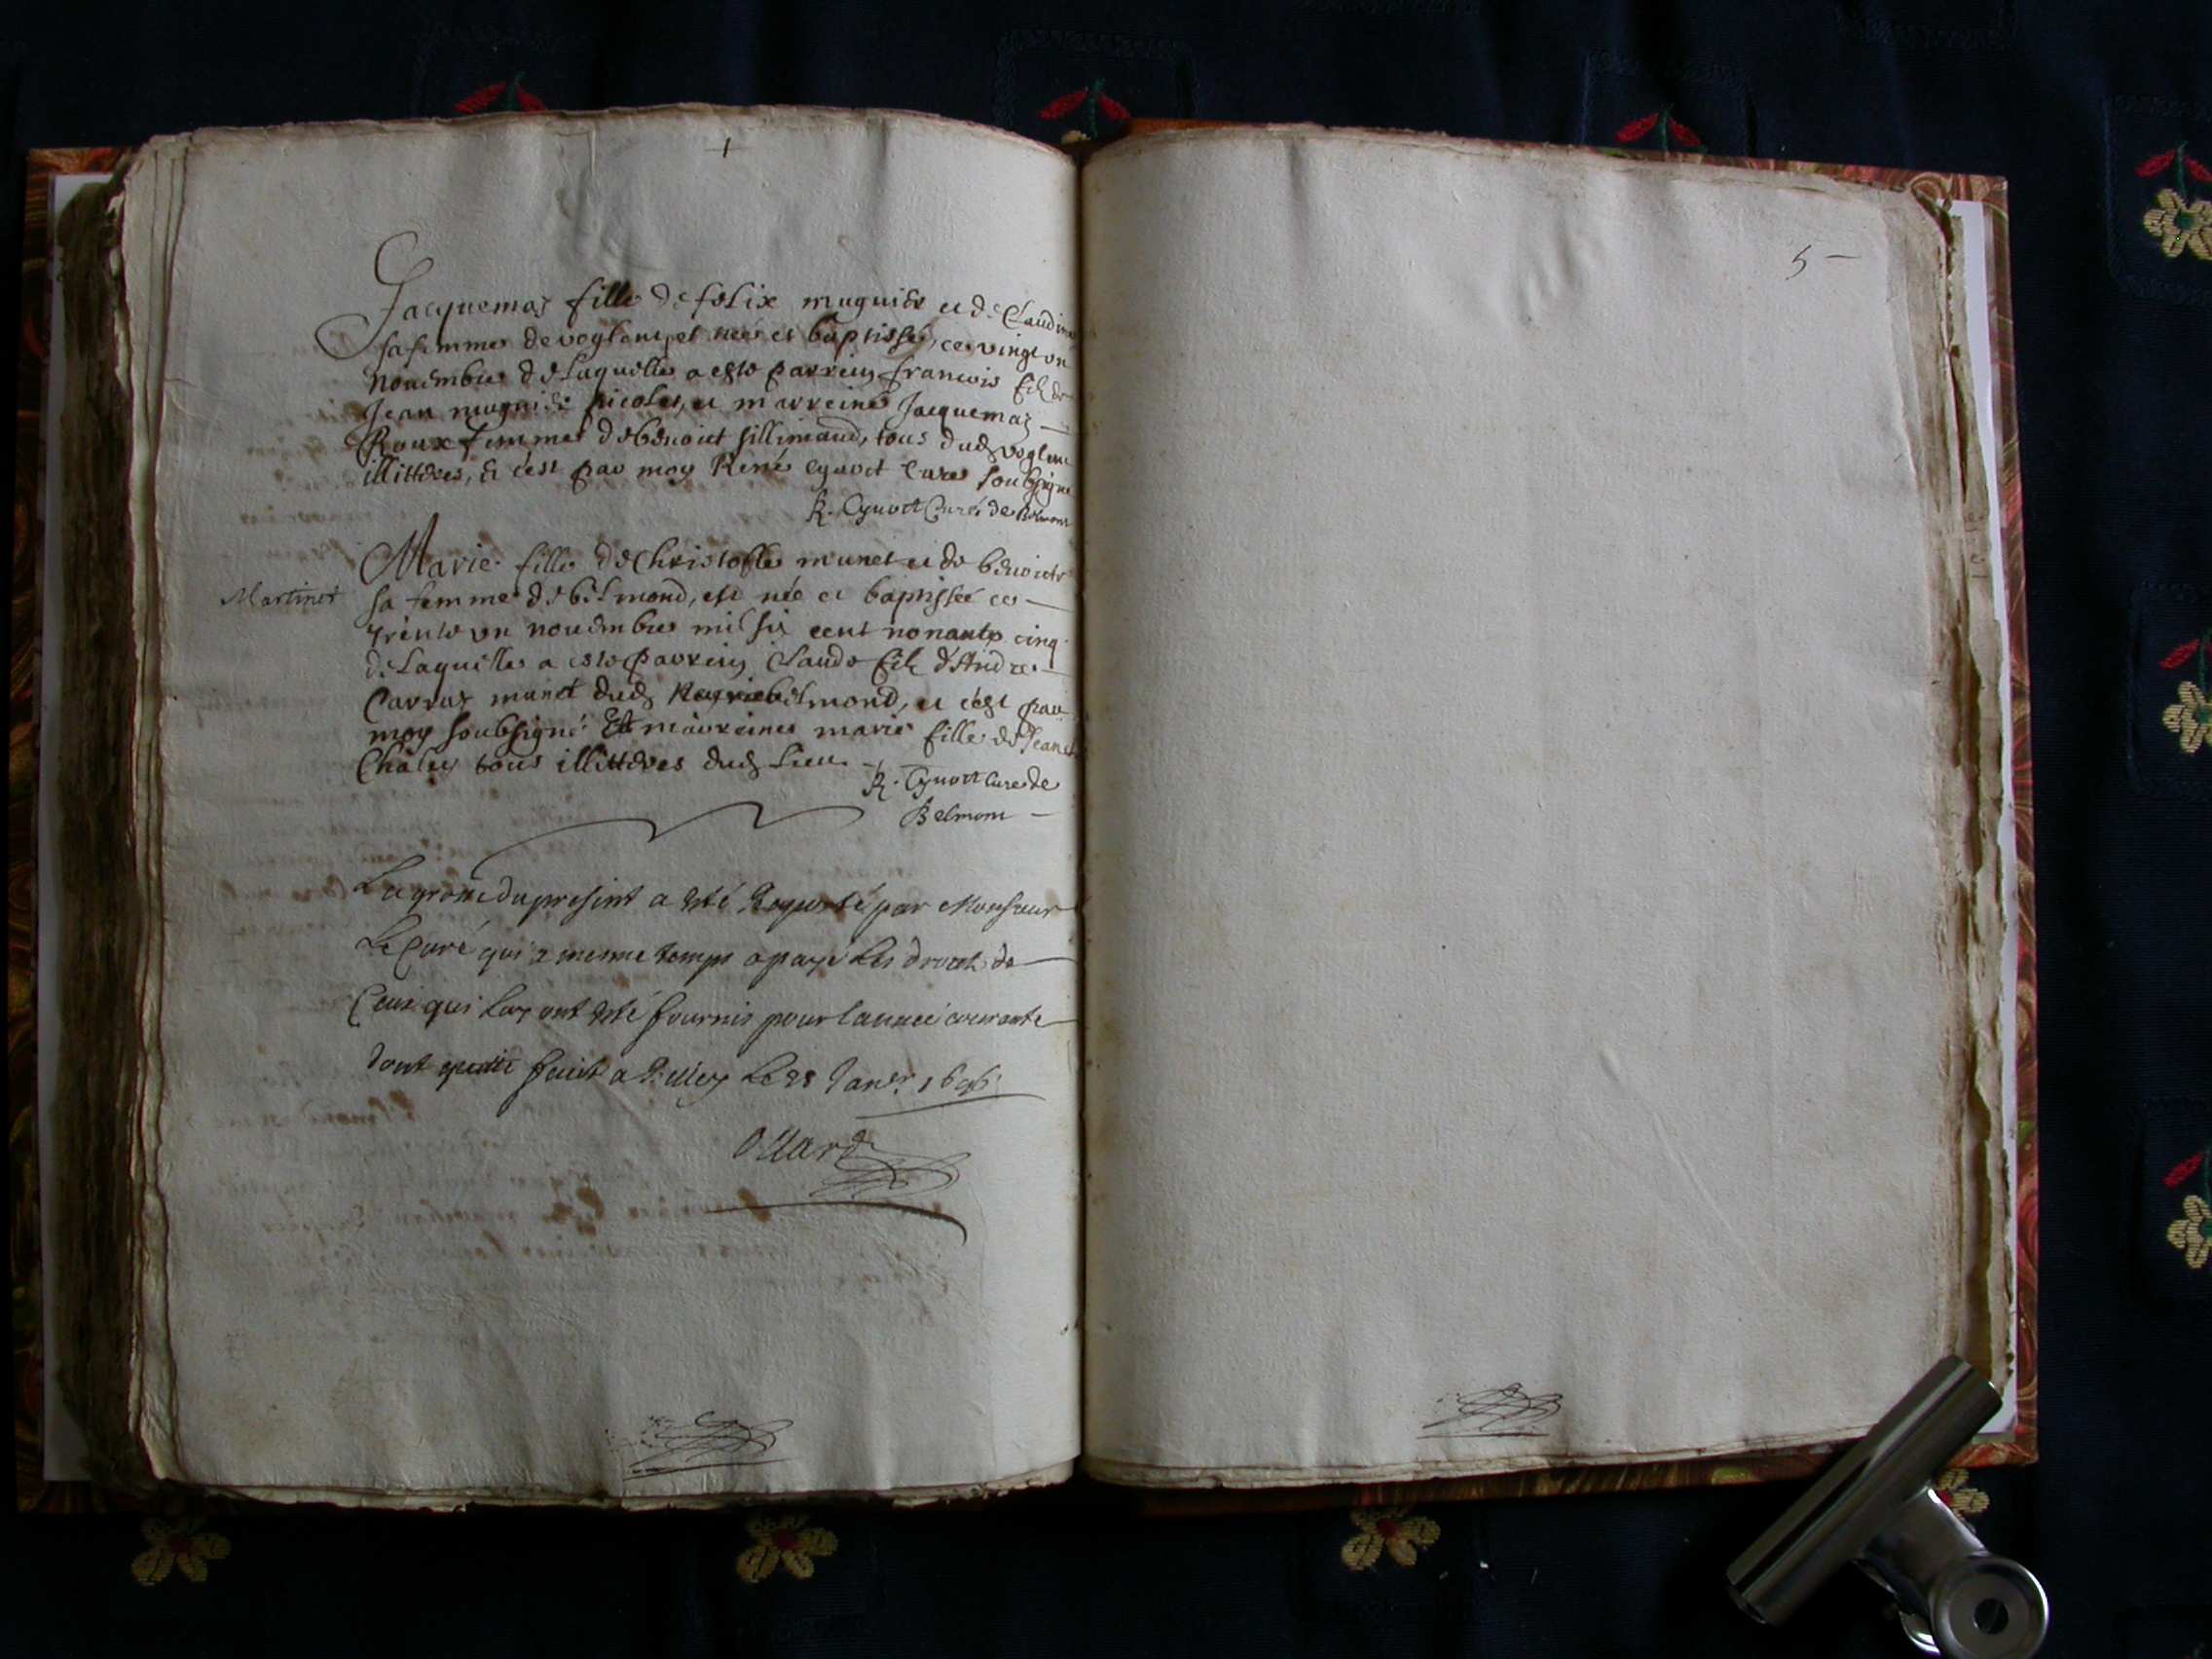 Jacquemaz fille de felix muguier et de Claudine
sa femme de voglent, est nee et baptissé, ce vingt un
novembre de Laquelle a esté parrein francois filz de
Jean muguier et marreine Jacquemaz
Roux femme de benoict fillimand, tous dudz voglent
illitteres, et c'est par moy René Cyuoct Curé soubsigné
R. Cyuoct Curé de Belmont
Marie fille de Christofle munet et de benoicte
Martinet
sa femme de belmond, est née et baptissée ce
trente un novembre mil six cent nonante cinq
de Laquelle a esté parrein Claude filz d'Andre
Carraz munet dudz belmond, et c'est par
moy soubsigné Et marreine marie fille de Jean
Chaley tous illitteres dudz Lieu
R. Cyuoct Curé de
Belmont
La grosse du present a esté Raporté par Monsieur
Le Curé qui a mesme temps a payé Les droict de
Ceux qui Luy ont esté fournis pour l'année courante
dont quitté faict a Belley Le 28 Janer. 1696
Ollard
5